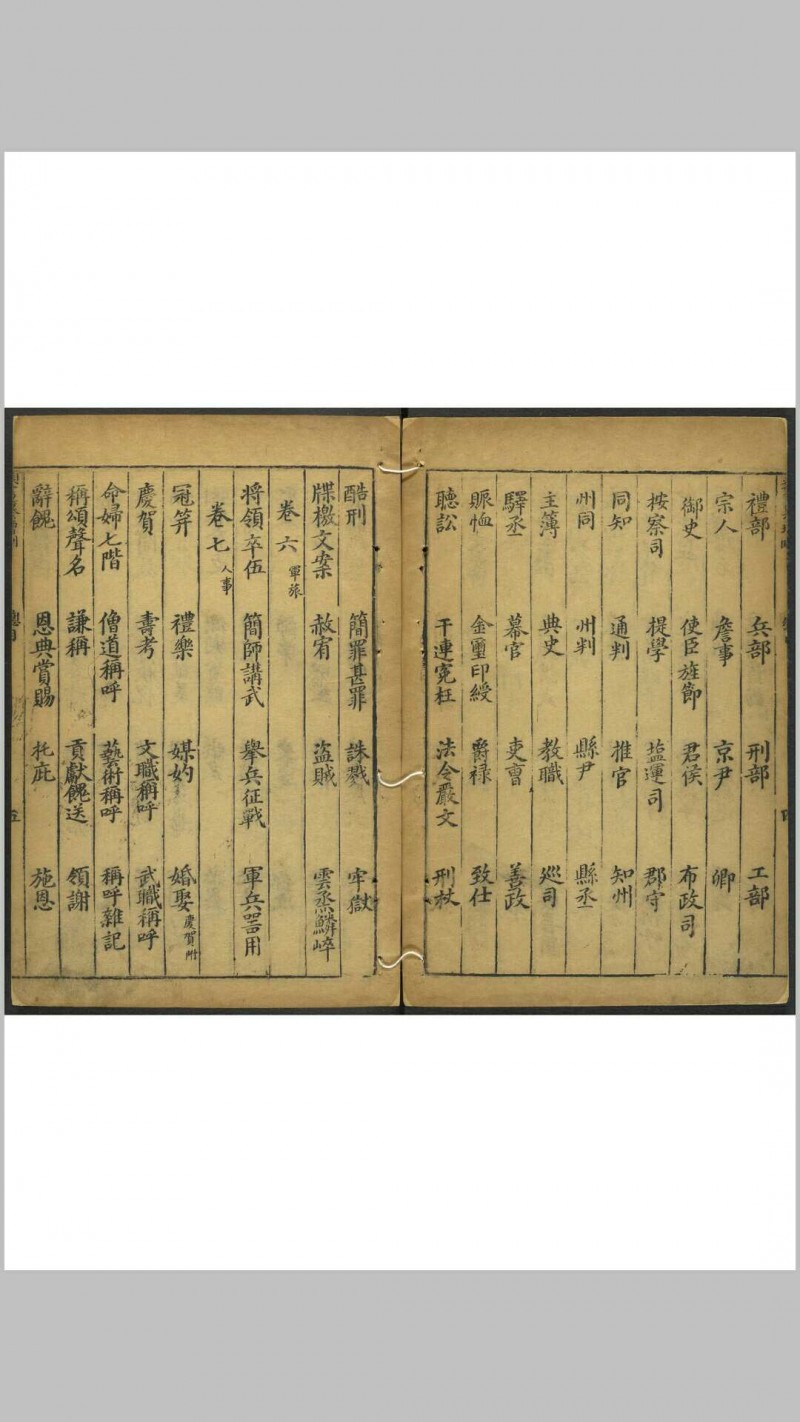 禮部 兵部 刑部 工部
宗人 詹事 京尹 卿
御史 使臣旌節 君侯 布政司
按察司 提學 塩運司 郡守
同知 通判 推官 知州
州同 州判 縣尹 縣丞
主簿 典史 教職 巡司
驛丞 幕官 吏曹 善政
賑恤 金璽印綬 爵禄 致仕
聽訟 干連寃枉 法令嚴文 刑杖
酷刑 簡罪甚罪 誅戮 牢獄
牒檄文案 赦宥 盜賊 雲烝鱗崪
卷六 軍旅
将領卒伍 簡師講武 舉兵征戰 軍兵噐用
卷七 人事
冠笄 禮樂 媒妁 婚娶 慶賀附
慶賀 壽考 文職稱呼 武職稱呼
命婦七階 僧道稱呼 藝術稱呼 稱呼雜記
稱頌聲名 謙稱 貢獻餽送 領謝
辭餽 恩典賞賜 托庇 施恩